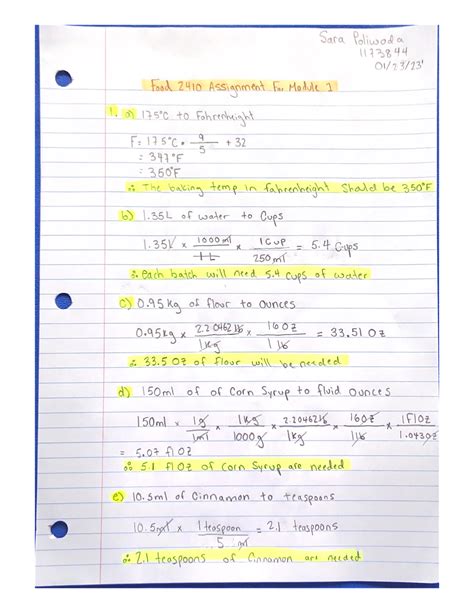 Sara Poliwoda
1173844
01/23/23'
Food 2410 Assignment For Module 1
1. a) 175°C to Fahrenheight
F = 175°C • 9/5 + 32
= 347°F
= 350°F
∴ The baking temp in fahrenheight should be 350°F
b) 1.35L of water to Cups
1.35L × 1000ml/1L × 1cup/250ml = 5.4 Cups
∴ each batch will need 5.4 cups of water
c) 0.95kg of flour to ounces
0.95kg × 2.20462lb/1kg × 16oz/1lb = 33.51 oz
∴ 33.5 oz of flour will be needed
d) 150ml of of Corn Syrup to fluid ounces
150ml × 1g/1ml × 1kg/1000g × 2.20462lb/1kg × 16oz/1lb × 1floz/1.043oz
= 5.07 fl oz
∴ 5.1 fl oz of Corn Syrup are needed
e) 10.5ml of Cinnamon to teaspoons
10.5ml × 1teaspoon/5ml = 2.1 teaspoons
∴ 2.1 teaspoons of Cinnamon are needed